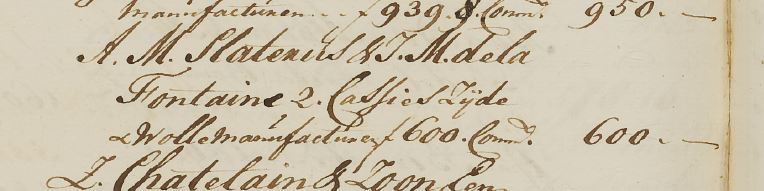 manufacturen. . . ƒ939.8. Comm. 950. —
A. M. Slatenus & J. M. de la
Fontaine 2. Cassies Zijde
& Wolle manufacturen ƒ600. Comm. 600. —
Z. Chatelain & Zoon Een